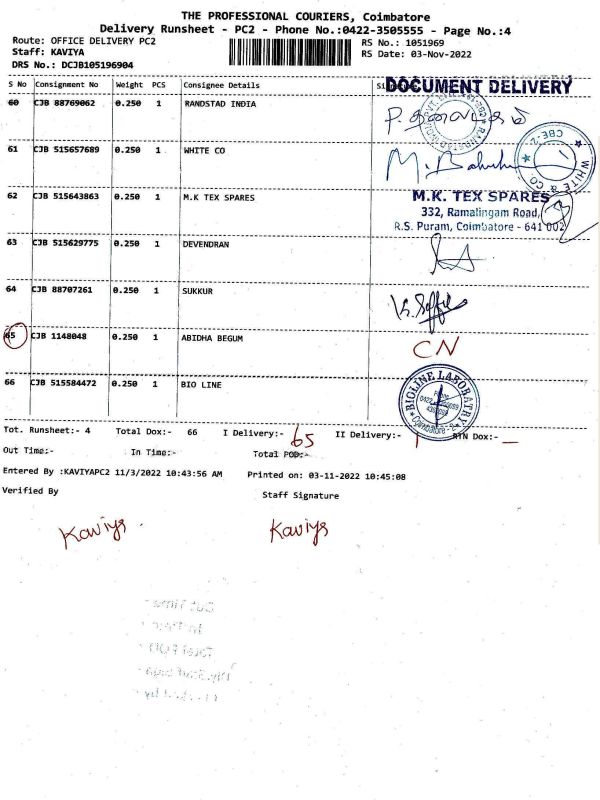 THE PROFESSIONAL COURIERS, Coimbatore
Delivery Runsheet - PC2 - Phone No.:0422-3505555 - Page No.:4
Route: OFFICE DELIVERY PC2
RS No.: 1051969
Staff: KAVIYA
RS Date: 03-Nov-2022
DRS No.: DCJB105196904
S No Consignment No Weight PCS Consignee Details
DOCUMENT DELIVERY
60 CJB 88769062 0.250 1 RANDSTAD INDIA
61 CJB 515657689 0.250 1 WHITE CO
WHITE & CO.
CBE-2.
62 CJB 515643863 0.250 1 M.K TEX SPARES
M.K. TEX SPARES
332, Ramalingam Road,
R.S. Puram, Coimbatore - 641 002
63 CJB 515629775 0.250 1 DEVENDRAN
64 CJB 88707261 0.250 1 SUKKUR
65 CJB 1148048 0.250 1 ABIDHA BEGUM
CN
66 CJB 515584472 0.250 1 BIO LINE
BIOLINE LABORATRY
Tot. Runsheet:- 4 Total Dox:- 66 I Delivery:- 65 II Delivery:- 1 RTN Dox:- —
Out Time:- In Time:- Total POD:-
Entered By :KAVIYAPC2 11/3/2022 10:43:56 AM Printed on: 03-11-2022 10:45:08
Verified By Staff Signature
Kaviya Kaviya